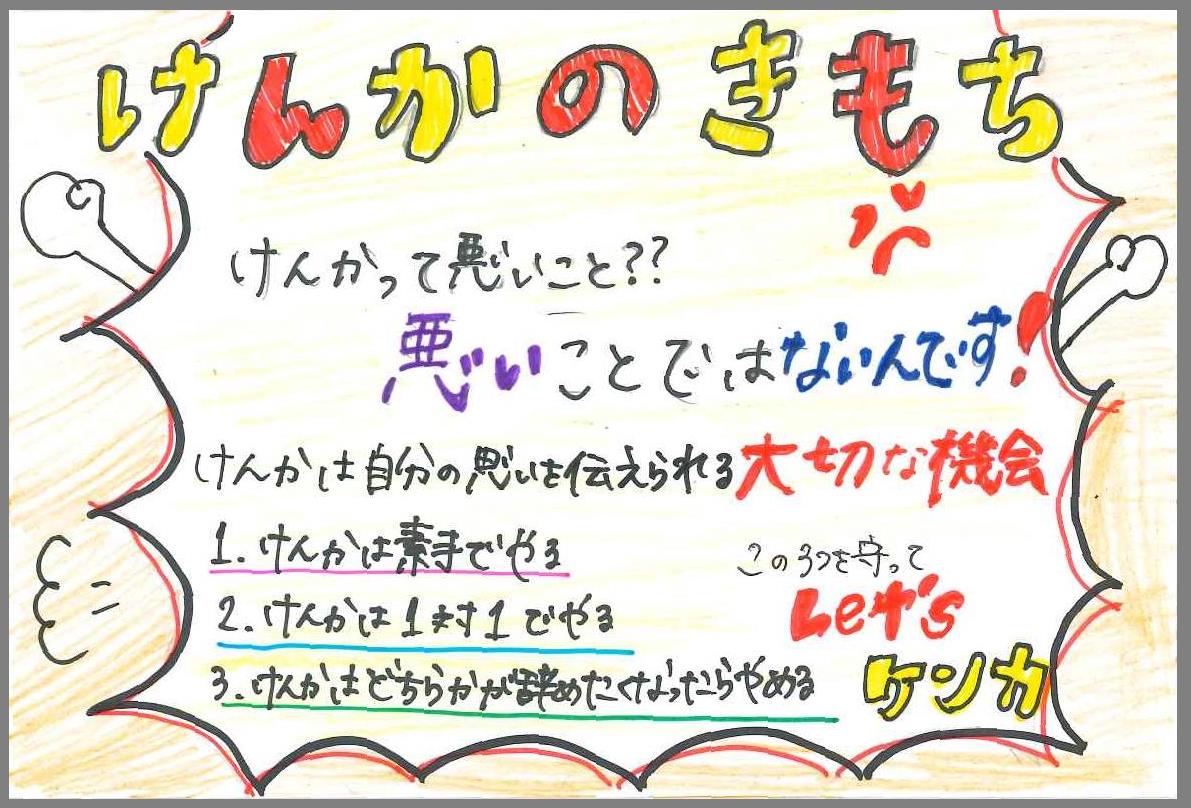 けんかのきもち
けんかって悪いこと??
悪いことではないんです!
けんかは自分の思いを伝えられる大切な機会
1.けんかは素手でやる
2.けんかは1対1でやる
3.けんかはどちらかが辞めたくなったらやめる
この3つを守って
Let's
ケンカ